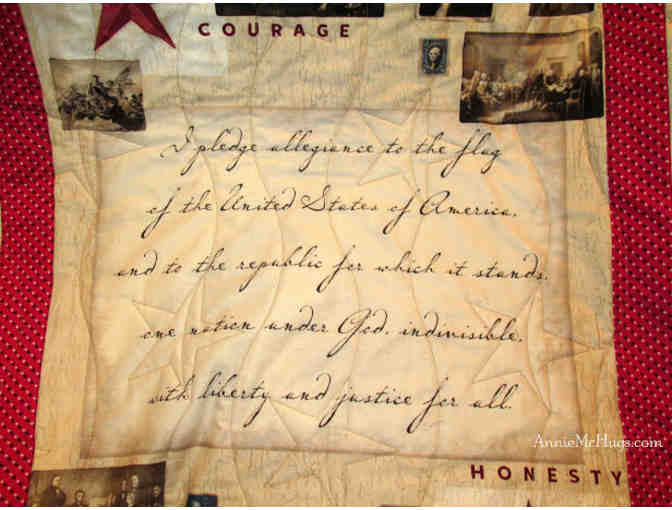 COURAGE
I pledge allegiance to the flag
of the United States of America,
and to the republic for which it stands,
one nation under God, indivisible,
with liberty and justice for all.
AnnieMcHugs.com
HONESTY